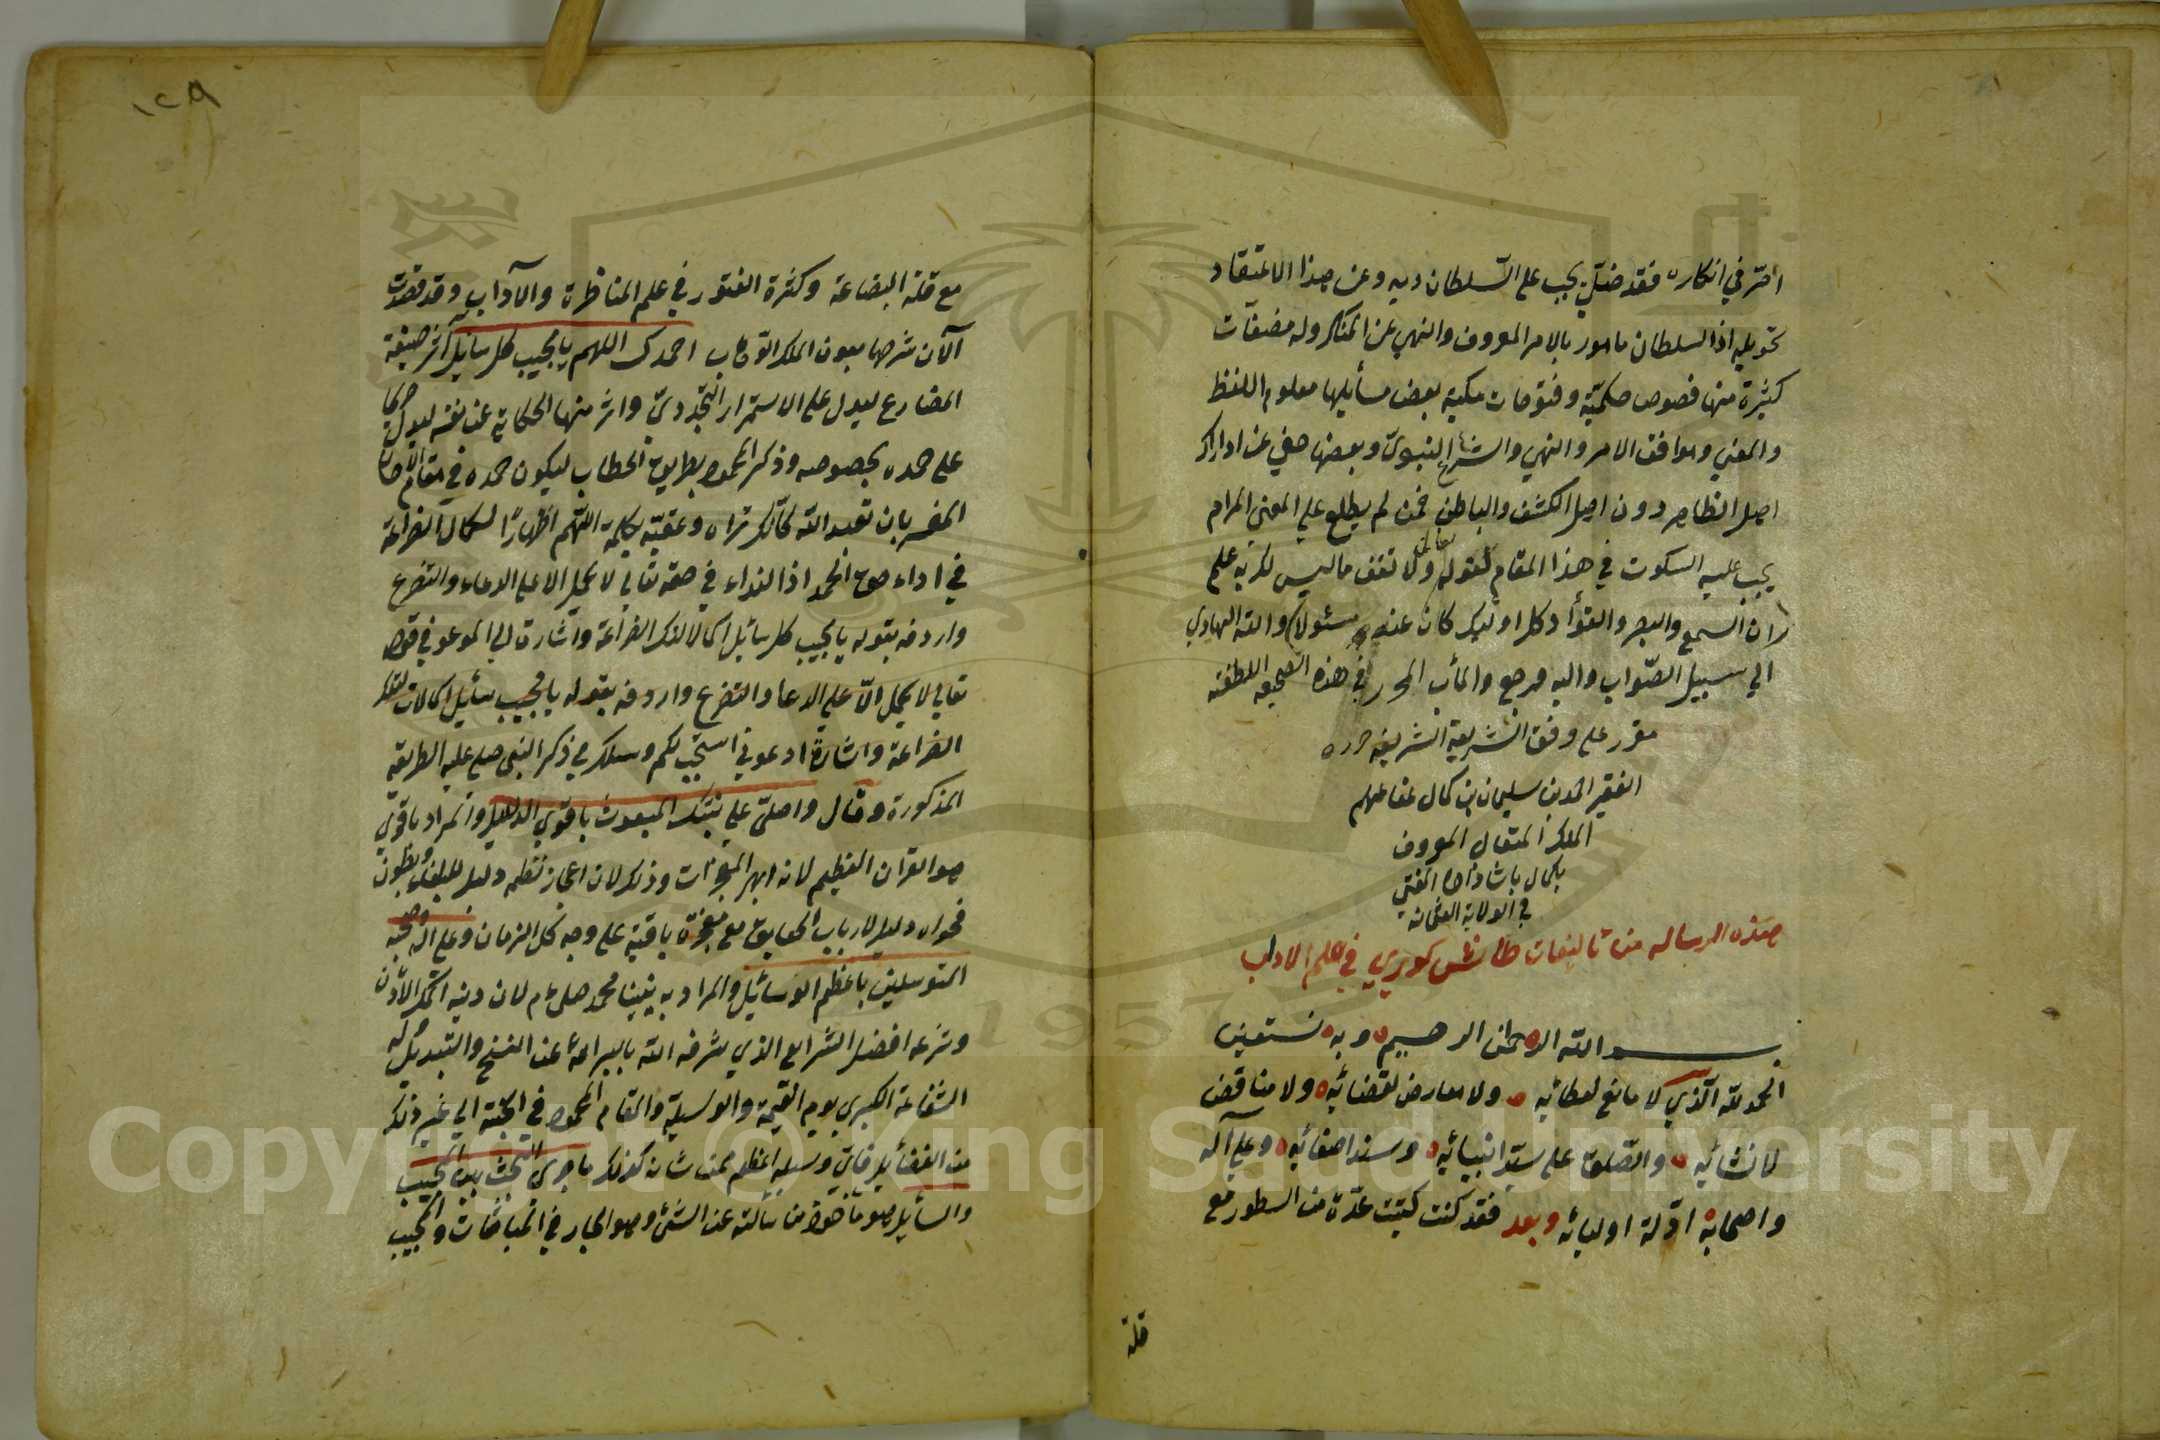 اصر في انكاره فقد ضل يجب على السلطان تأديبه وعن هذا الاعتقاد
تحويله اذ السلطان مامور بالامر المعروف والنهي عن المنكر وله مصنفات
كثيرة منها فصوص حكمية وفتوحات مكية بعض مسايلها معلوم اللفظ
والمعني وموافق الامر والنهي والشرع النبوي وبعضها خفي عن ادراك
اهل الظاهر دون اهل الكشف والباطن فمن لم يطلع علي المعني المرام
يجب عليه السكوت في هذا المقام لقوله تعالى ولا تقف ماليس لك به علم
ان السمع والبصر والفؤاد كل اولئك كان عنه مسئولا والله الهادي
الي سبيل الصواب واليه مرجع والمأب المحرر في هذه الصحيفه اللطيفه
مقرر على وفق الشريعة الشريفه حرره
الفقير احمد بن سليمان بن كمال عفا عنهم
الملك المتعال المعروف
بكمال باشا زاده المفتي
في الولاية العثمانية
هذه الرساله من تاليفات طاش كوبري في علم الاداب
بسم الله الرحمن الرحيم وبه نستعين
الحمد لله الذي لا مانع لعطائه ولا معارض لقضائه ولا مناقض
لانشائه والصلوة على سيد انبيائه وسند اصفيائه وعلي آله
واصحابه ادلة اوليائه وبعد فقد كنت كتبت عدة من السطور مع
قلة
١٢٩
مع قلة البضاعة وكثرة الفتور في علم المناظرة والآداب وقد قصدت
الآن شرحها بعون الملك الوهاب احمدك اللهم يا مجيب كل سايل آثر صيغة
المضارع ليدل على الاستمرار التجددي واثر منها الحكاية عن نفسه ليدل
على حمده بخصوصه وذكر المحمود بطريق الخطاب ليكون حمده في مقام الاحسان
المفسر بان تعبد الله كأنك تراه وعقبه بكلمة اللهم اظهارًا لكمال الضراعة
في اداء حق الحمد اذ النداء في حقه تعالى لا يحمل الا على الدعاء والتضرع
واردفه بقوله يا مجيب كل سايل اكمالا لذلك الضراعة واشارة الي ادعوني في قوله
تعالي لا يحمل الا علي الدعا والتضرع واردفه بقوله يا مجيب سائل اكمالات لتلك
الضراعة واشارة ادعوني استجب لكم وسلك في ذكر النبي صلع عليه الطريقة
المذكورة وقال واصلي علي نبيك المبعوث باقوي الدلائل والمراد باقوي
هو القران العظيم لانه ابهر المعجزات وذلك لان اعجاز نظمه دليل للبلغاء وبطون
فحواه دليل لارباب الحقايق مع معجزة باقية على وجه كل الزمان وعلى اله وصحبه
المتوسلين باعظم الوسائل والمراد به نبينا محمد صلى م لان دينه اكمل الاديان
وشرعه افضل الشرايع الذي شرفه الله بالبراءة عن النسخ والتبديل وله
الشفاعة الكبري يوم القيمة والوسيلة والمقام المحمود في الجنة الي غير ذلك
من الفضائل فاي وسيلة اعظم ممن شانه كذلك ما جري البحث بين المجيب
والسائل هو ماخوذ من سألته عن الشئ وهو الجار في المباحثات والمجيب